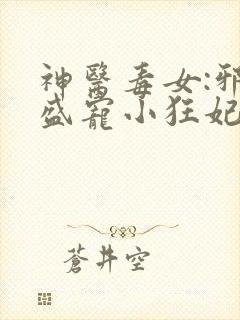 神醫毒女:邪
盛寵小狂妃
蒼井空